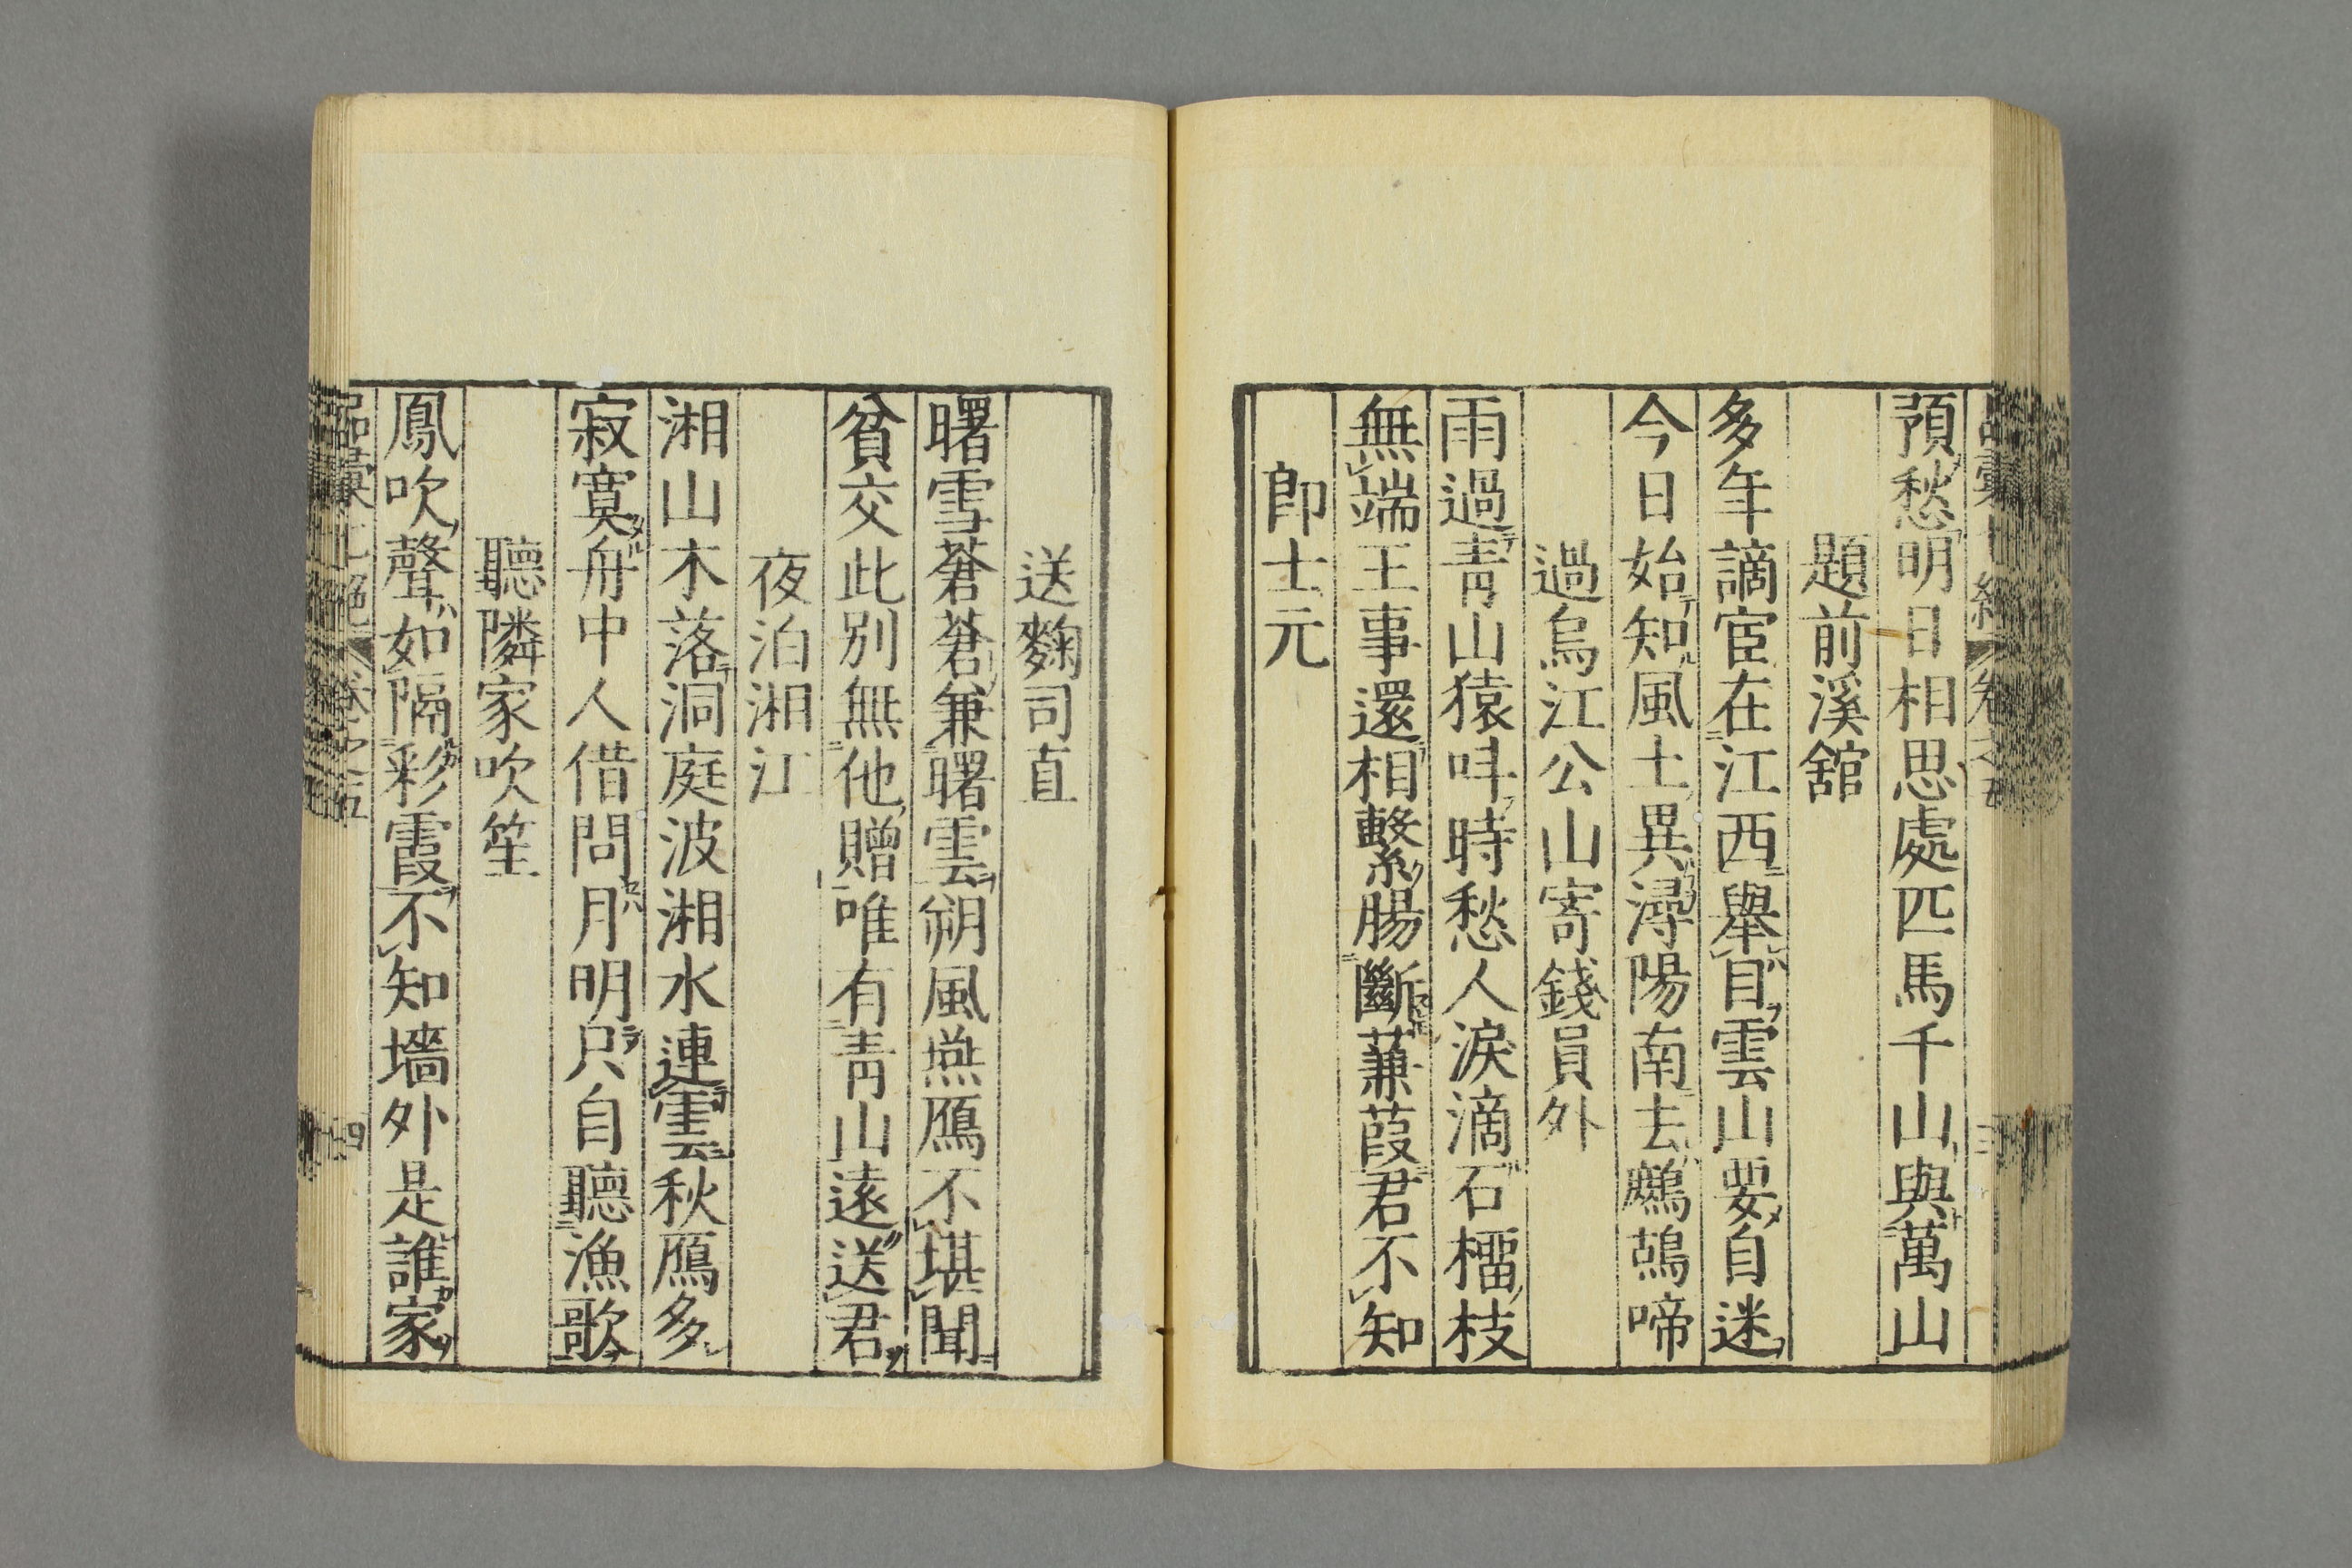 預愁明日相思處匹馬千山與萬山
題前溪舘
多年謫宦在江西舉目雲山要自迷
今日始知風土異潯陽南去鷓鴣啼
過烏江公山寄錢員外
雨過青山猿呌時愁人淚滴石榴枝
無端王事還相繫腸斷蒹葭君不知
郎士元
送麴司直
曙雪蒼蒼兼曙雲朔風燕鴈不堪聞
貧交此別無他贈唯有青山遠送君
夜泊湘江
湘山木落洞庭波湘水連雲秋鴈多
寂寞舟中人借問月明只自聽漁歌
聽隣家吹笙
鳳吹聲如隔彩霞不知墻外是誰家